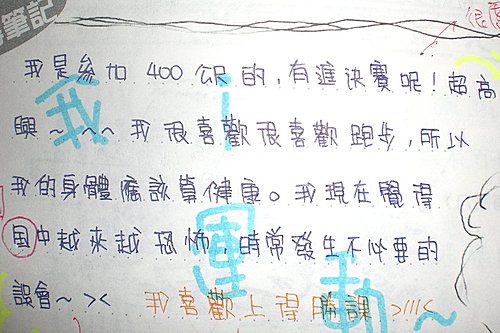 筆記
我是參加 400 公尺 的，有進決賽呢！超高
興～～～我很喜歡很喜歡跑步，所以
我的身體應該算健康。我現在覺得
國中越來越恐怖 時常發生不必要的
誤會～ >< 我喜歡上得勝課 >///<
運動